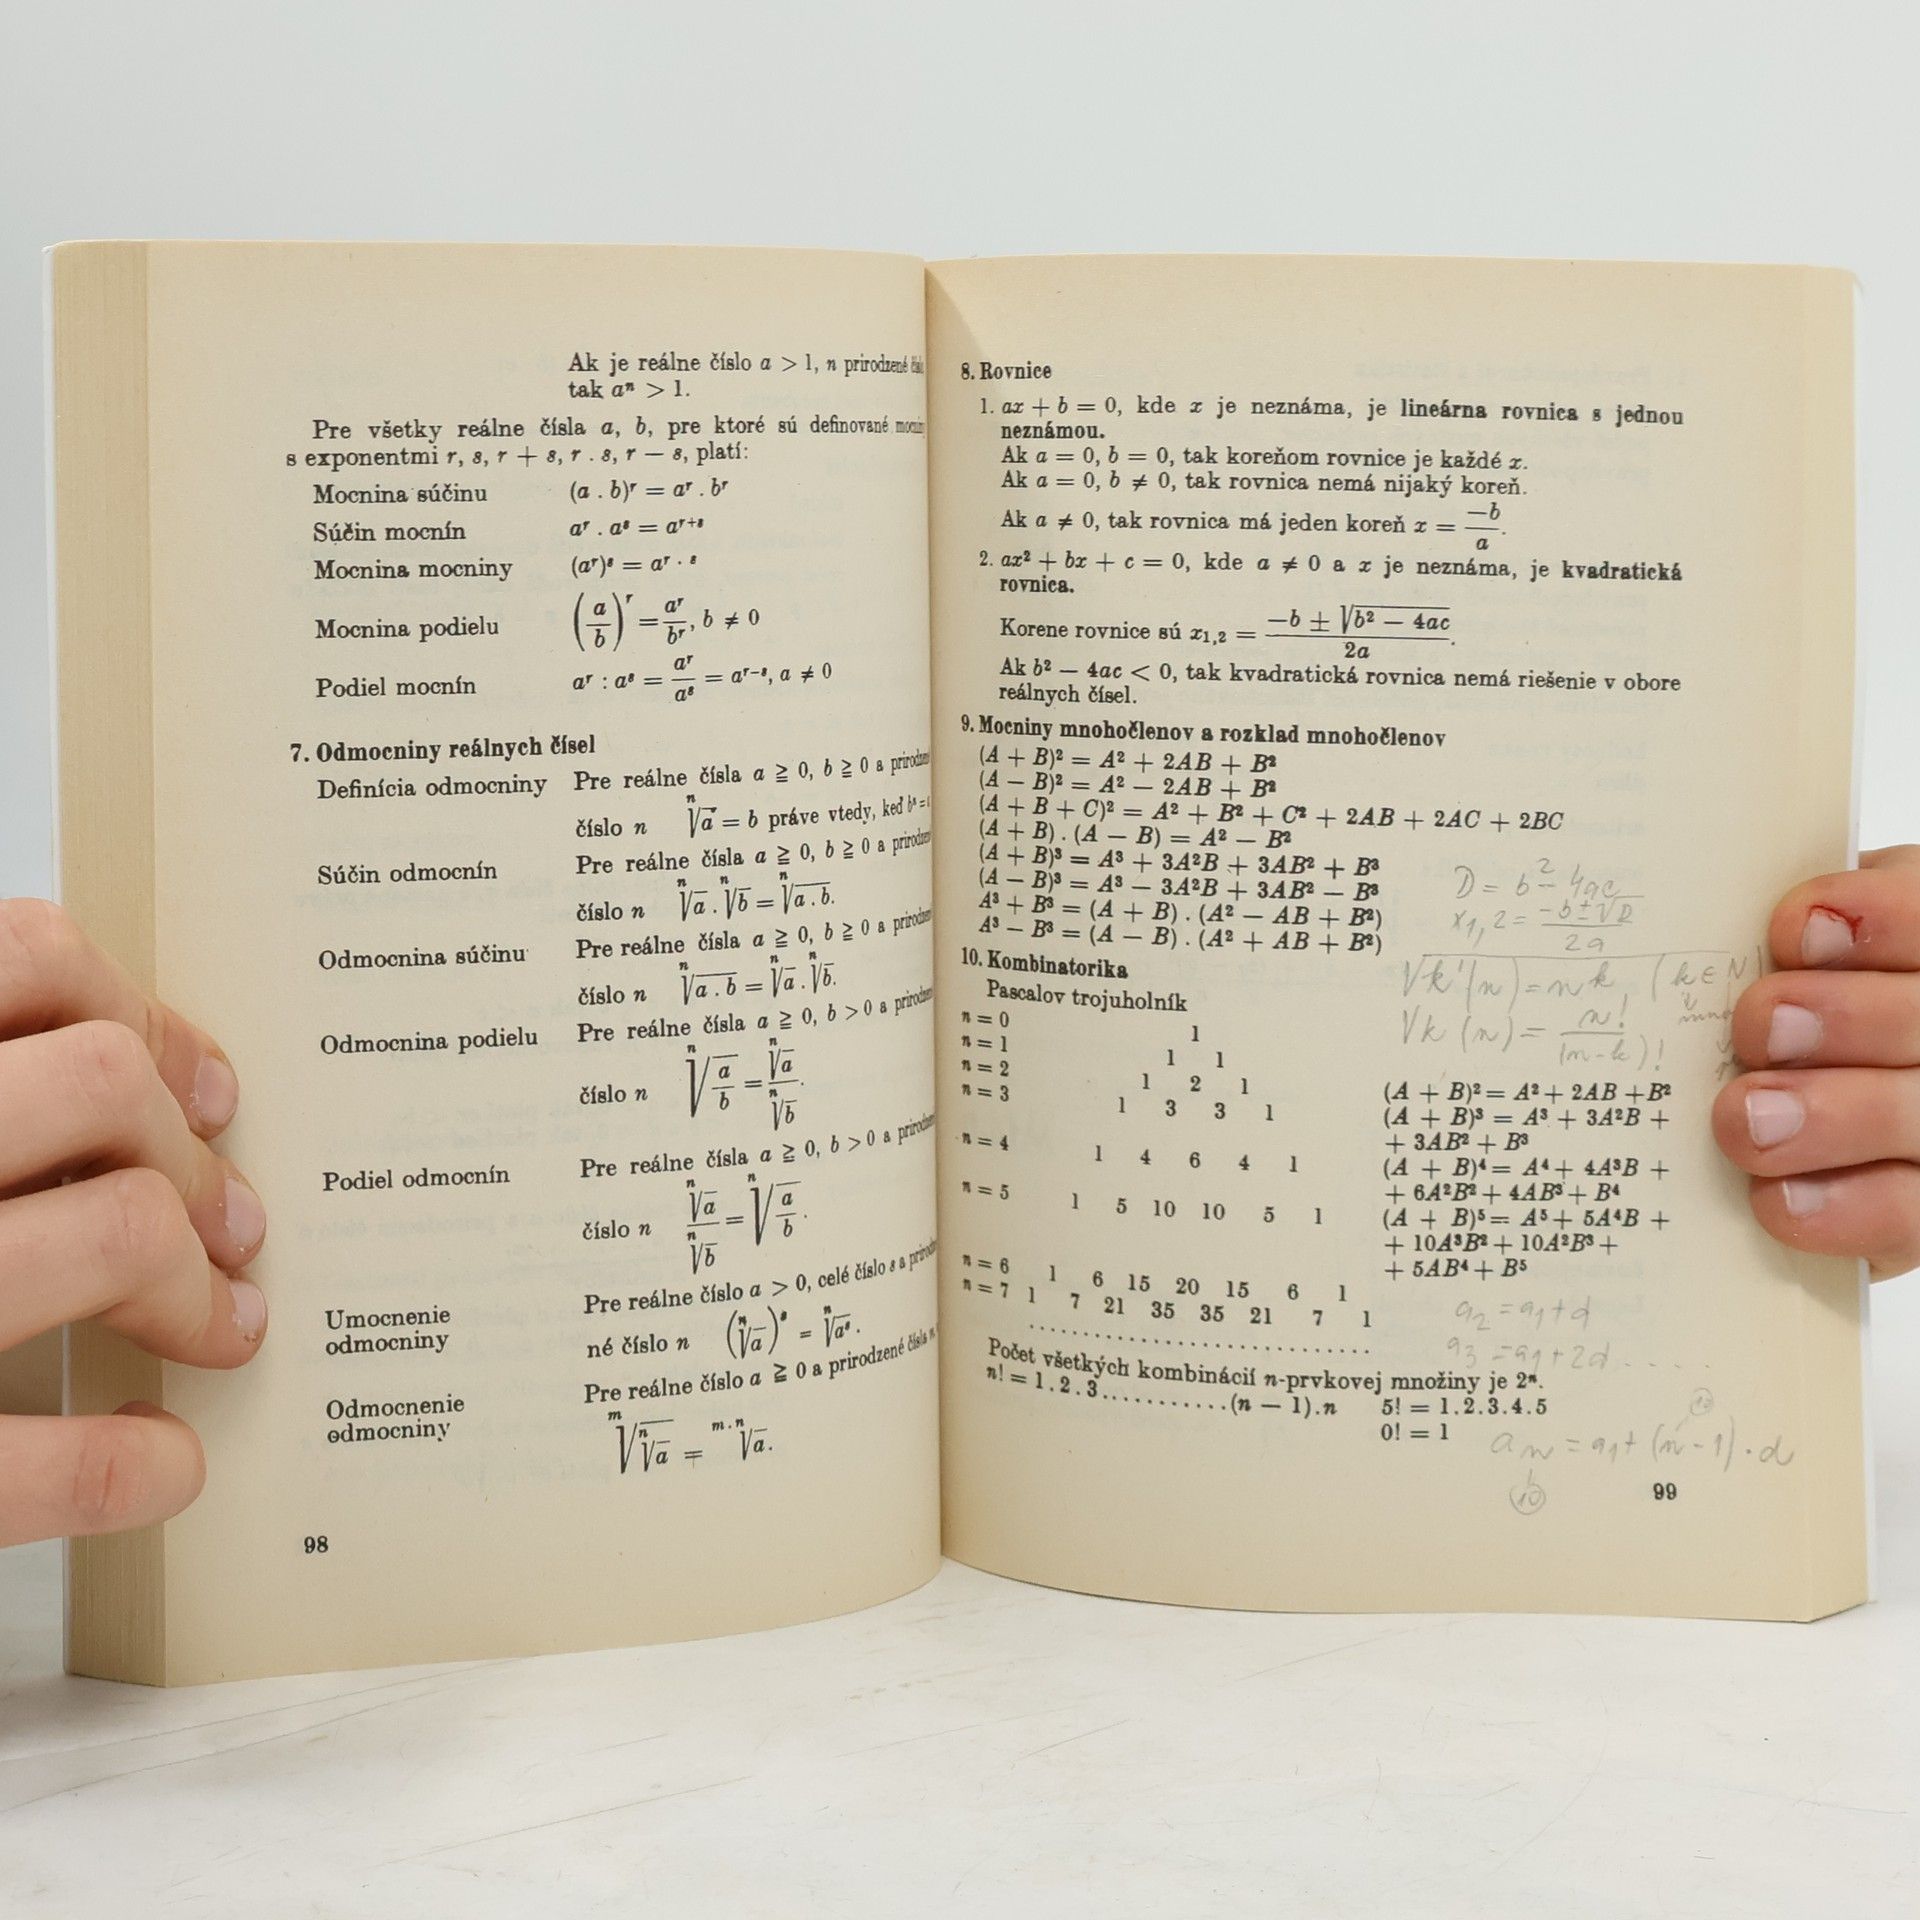 Ak je reálne číslo a > 1, n prirodzené
tak aⁿ > 1.
Pre všetky reálne čísla a, b, pre ktoré sú definované
s exponentmi r, s, r + s, r . s, r − s, platí:
Mocnina súčinu (a . b)ʳ = aʳ . bʳ
Súčin mocnín aʳ . aˢ = aʳ⁺ˢ
Mocnina mocniny (aʳ)ˢ = aʳ · ˢ
Mocnina podielu (a/b)ʳ = aʳ/bʳ, b ≠ 0
Podiel mocnín aʳ : aˢ = aʳ/aˢ = aʳ⁻ˢ, a ≠ 0
7. Odmocniny reálnych čísel
Definícia odmocniny Pre reálne čísla a ≧ 0, b ≧ 0 a
číslo n ⁿ√a = b práve vtedy, keď bⁿ =
Súčin odmocnín Pre reálne čísla a ≧ 0, b ≧ 0 a
číslo n ⁿ√a . ⁿ√b = ⁿ√(a . b).
Odmocnina súčinu Pre reálne čísla a ≧ 0, b ≧ 0 a
číslo n ⁿ√(a . b) = ⁿ√a . ⁿ√b.
Odmocnina podielu Pre reálne čísla a ≧ 0, b > 0 a
číslo n ⁿ√(a/b) = ⁿ√a/ⁿ√b.
Podiel odmocnín Pre reálne čísla a ≧ 0, b > 0 a
číslo n ⁿ√a/ⁿ√b = ⁿ√(a/b).
Umocnenie Pre reálne číslo a > 0, celé číslo s a
odmocniny né číslo n (ⁿ√a)ˢ = ⁿ√aˢ.
Odmocnenie Pre reálne číslo a ≧ 0 a prirodzené čísla
odmocniny ᵐ√ⁿ√a = ᵐ·ⁿ√a.
98
8. Rovnice
1. ax + b = 0, kde x je neznáma, je lineárna rovnica s jednou
neznámou.
Ak a = 0, b = 0, tak koreňom rovnice je každé x.
Ak a = 0, b ≠ 0, tak rovnica nemá nijaký koreň.
Ak a ≠ 0, tak rovnica má jeden koreň x = −b/a.
2. ax² + bx + c = 0, kde a ≠ 0 a x je neznáma, je kvadratická
rovnica.
Korene rovnice sú x₁,₂ = (−b ± √(b² − 4ac))/2a.
Ak b² − 4ac < 0, tak kvadratická rovnica nemá riešenie v obore
reálnych čísel.
9. Mocniny mnohočlenov a rozklad mnohočlenov
(A + B)² = A² + 2AB + B²
(A − B)² = A² − 2AB + B²
(A + B + C)² = A² + B² + C² + 2AB + 2AC + 2BC
(A + B) . (A − B) = A² − B²
(A + B)³ = A³ + 3A²B + 3AB² + B³
(A − B)³ = A³ − 3A²B + 3AB² − B³
A³ + B³ = (A + B) . (A² − AB + B²)
A³ − B³ = (A − B) . (A² + AB + B²)
D = b² − 4ac
x1,2 = (−b ± √D)/2a
10. Kombinatorika
Vk'(n) = nᵏ (k ∈ N)
Vk(n) = n!/(n−k)!
Pascalov trojuholník
n = 0 1
n = 1 1 1
n = 2 1 2 1 (A + B)² = A² + 2AB + B²
n = 3 1 3 3 1 (A + B)³ = A³ + 3A²B +
+ 3AB² + B³
n = 4 1 4 6 4 1 (A + B)⁴ = A⁴ + 4A³B +
+ 6A²B² + 4AB³ + B⁴
n = 5 1 5 10 10 5 1 (A + B)⁵ = A⁵ + 5A⁴B +
+ 10A³B² + 10A²B³ +
+ 5AB⁴ + B⁵
n = 6 1 6 15 20 15 6 1
n = 7 1 7 21 35 35 21 7 1
............................
a₂ = a₁ + d
a₃ = a₁ + 2d . . . . .
Počet všetkých kombinácií n-prvkovej množiny je 2ⁿ.
n! = 1 . 2 . 3 . . . . . . . . . . . (n − 1) . n 5! = 1 . 2 . 3 . 4 . 5
0! = 1
aₙ = a₁ + (n − 1) . d
10
99